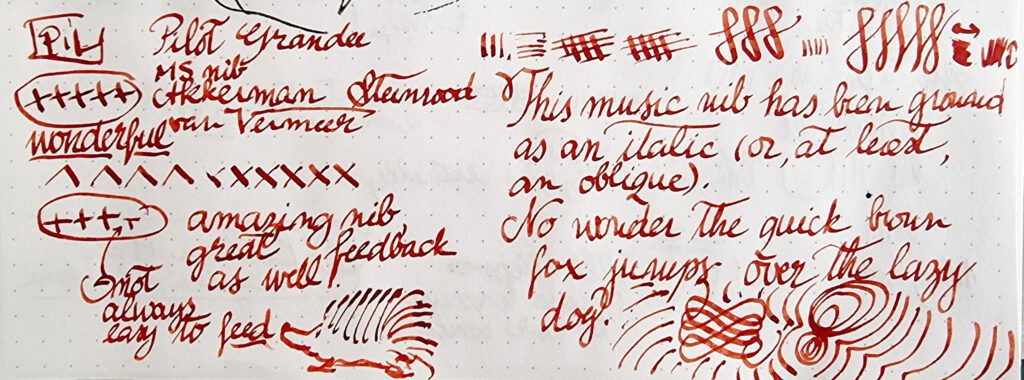 Pil
Pilot Grandee
MS nib
+++++
Akkerman Steenrood
van Vermeer
wonderful
xxxxxx
++++
amazing nib,
great feedback
as well.
not
always
easy to feed
This music nib has been ground
as an italic (or, at least,
an oblique).
No wonder the quick brown
fox jumps over the lazy
dog?